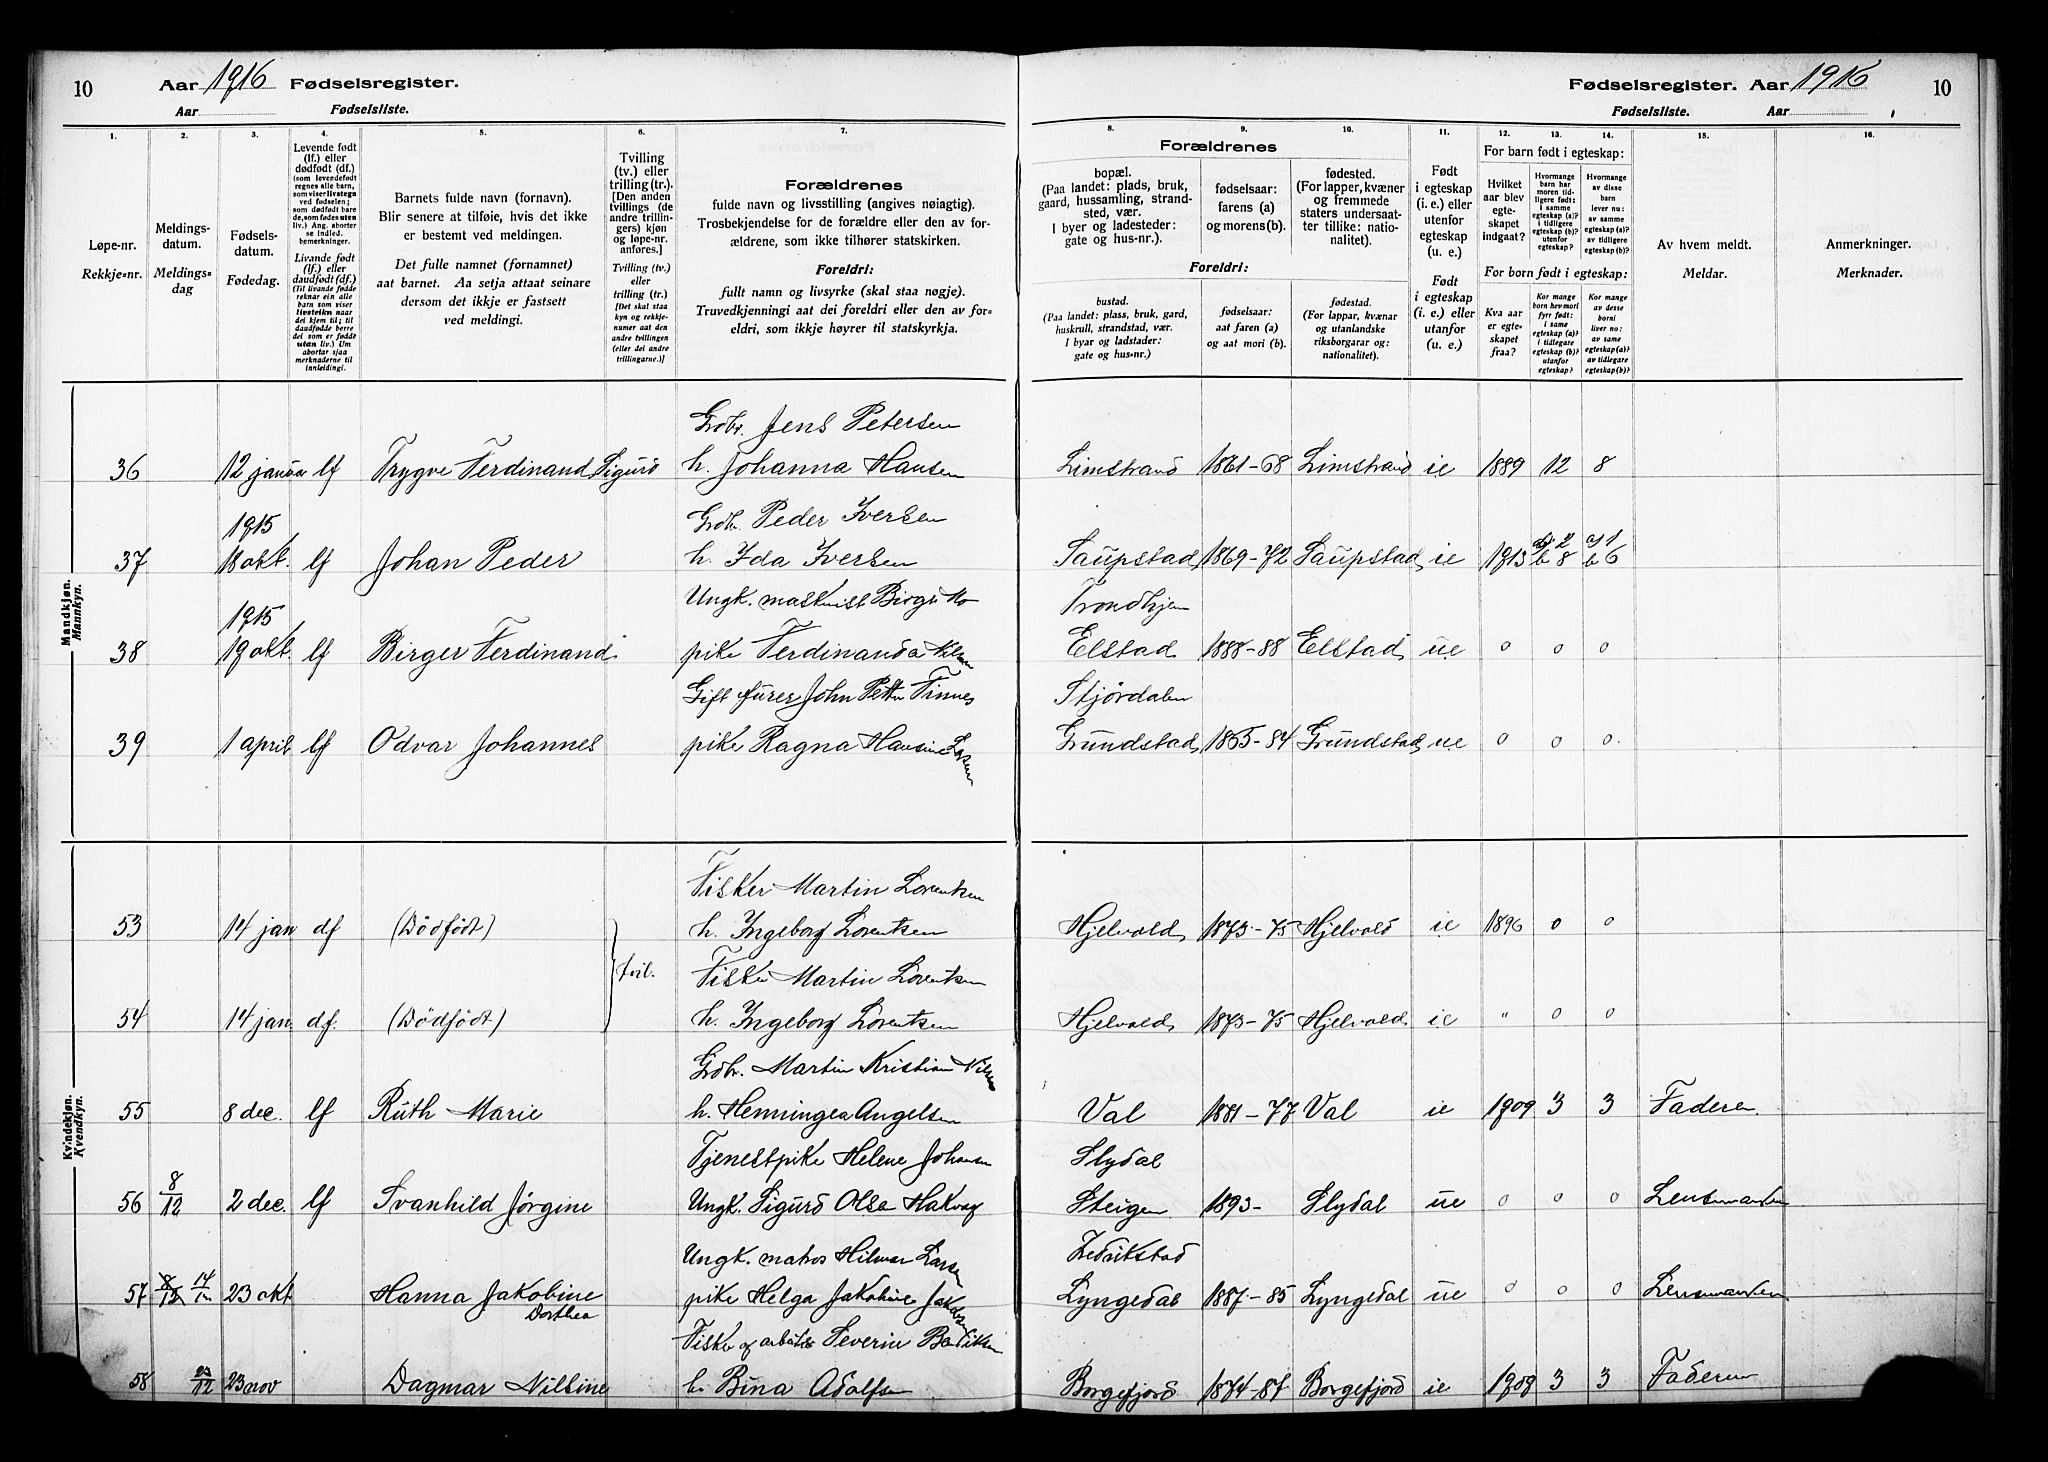 10 Aar 1916 Fødselsregister.
Aar Fødselsliste.
1. 2. 3. 4. 5. 6. 7.
Løpe-nr.
Rekkje-nr.
Meldings-
datum.
Meldings-
dag
Fødsels-
datum.
Fødedag.
Levende født
(lf.) eller
dødfødt (df.)
(som levendefødt
regnes alle barn,
som viser livstegn
ved fødselen;
som dødfødt bare
de, som fødes uten
liv.) Ang. aborter
se indled.
bemerkninger.
Livande født
(lf.) eller
daudfødt (df.)
(Til livande fødde
reknar ein alle
barn som viser
livsteikn naar
dei kjem til; til
daudfødde berre
dei som er fødde
utan liv.) Um
abortar sjaa
merknaderne til
innleidingi.
Barnets fulde navn (fornavn).
Blir senere at tilføie, hvis det ikke
er bestemt ved meldingen.
Det fulle namnet (fornamnet)
aat barnet. Aa setja attaat seinare
dersom det ikkje er fastsett
ved meldingi.
Tvilling
(tv.) eller
trilling (tr.).
[Den anden
tvillings (de
andre trillin-
gers) kjøn
og løpe-nr.
anføres.]
Tvilling (tv.)
eller
trilling (tr.)
[Det skal staa
kyn og rekkje-
numer aat den
andre tvillingen
(eller dei andre
trillingarne.)]
Forældrenes
fulde navn og livsstilling (angives nøiagtig).
Trosbekjendelse for de forældre eller den av for-
ældrene, som ikke tilhører statskirken.
Foreldri:
fullt namn og livsyrke (skal staa nøgje).
Truvedkjenningi aat dei foreldri eller den av for-
eldri, som ikkje høyrer til statskyrkja.
Fødselsregister. Aar 1916 10
Fødselsliste. Aar
8. 9. 10. 11. 12. 13. 14. 15. 16.
Forældrenes
bopæl.
(Paa landet: plads, bruk,
gaard, hussamling, strand-
sted, vær.
I byer og ladesteder:
gate og hus-nr.).
fødselsaar:
farens (a)
og morens (b).
fødested.
(For lapper, kvæner
og fremmede
staters undersaat-
ter tillike: natio-
nalitet).
Foreldri:
bustad.
(Paa landet: plass, bruk, gard,
huskrull, strandstad, vær.
I byar og ladstader:
gate og hus-nr.)
fødselsaar:
aat faren (a)
og mori (b).
fødestad.
(For lappar, kvænar
og utanlandske
riksborgarar og:
nationalitet).
Født
i egteskap
(i. e.) eller
utenfor
egteskap
(u. e.)
Født
i egteskap
(i. e.) eller
utanfor
(u. e.)
For barn født i egteskap:
Hvilket
aar blev
egte-
skapet
indgaat?
Hvormange
barn har
moren tid-
ligere født:
i samme
egteskap (a)?
i tidligere
egteskap (b)?
utenfor
egteskap?
Hvormange
av disse
barn
lever nu:
av samme
egteskap (a)?
av tidligere
egteskap (b)?
For born født i egteskap:
Kva aar
er egte-
skapet
fraa?
Kor mange
born hev mori
fyrr født:
i same
egteskap (a)?
i tidlegare
egteskap (b)?
utanfor
egteskap?
Kor mange
av desse
borni
liver no:
av same
egteskap (a)?
av tidlegare
egteskap (b)?
Av hvem meldt.
Meldar.
Anmerkninger.
Merknader.
Mandkjøn.
Mannkyn.
Grdbr. Jens Petersen
36 12 januar lf Trygve Ferdinand Sigurd h. Johanna Hansen Limstrand 1861-68 Limstrand ie 1889 12 8
1915 Grdbr. Peder Iversen
37 18 okt. lf Johan Peder h. Ida Iversen Saupstad 1869-72 Saupstad ie 1913 a 2 b 8 a 1 b 6
1915 Ungk. maskinist Birger Mo Trondhjem
38 19 okt. lf Birger Ferdinand pike Ferdinanda Nilsen Elstad 1888-88 Elstad ue 0 0 0
Gift furer John Petter Finnes Stjördalen
39 1 april lf Odvar Johannes pike Ragna Hansine Larsen Grundstad 1865-84 Grundstad ue 0 0 0
Kvindekjøn.
Kvendkyn.
Fisker Martin Lorentsen
53 14 jan df (Dödfödt) h. Ingeborg Lorentsen Hjelvold 1873-75 Hjelvold ie 1896 0 0
tvil.
Fisker Martin Lorentsen
54 14 jan. df. (Dödfödt) h. Ingeborg Lorentsen Hjelvold 1873-75 Hjelvold ie " 0 0
Grdbr. Martin Kristian Nilsen
55 8 dec. lf Ruth Marie h. Henningea Angelsen Val 1881-77 Val ie 1909 3 3 Faderen
Tjenestpike Helene Johansen Slydal
56 8/12 2 dec. lf Svanhild Jørgine Ungk. Sigurd Olsen Hakvag Steigen 1893- Slydal ue 0 0 0 Lensmanden
Ungk. matros Hilmar Larsen Fredrikstad
57 8/12 14/12 23 okt Hanna Jakobine Dorthea pike Helga Jakobine Jakobsen Lyngedal 1887-85 Lyngedal ue 0 0 0 Lensmanden
Fisker og arbeider Severin Bendiksen
58 23/12 23 nov Dagmar Nilsine h. Bina Adolfsen Borgefjord 1874-87 Borgefjord ie 1909 3 3 Faderen